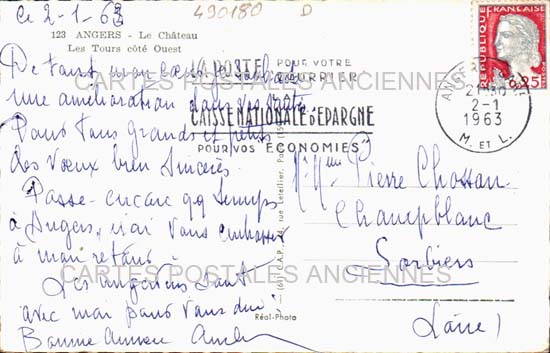 Ce 2-1-63
490180 D
123 ANGERS - Le Château
Les Tours côté Ouest
De tout mon cœur je souhaite
une amélioration dans vos santés
Pour tous grands et petits
des Vœux bien Sincères
Passe encore qq temps
à Angers, irai vous embrasser
à mon retour
Les angevins sont
avec moi pour vous dire
Bonne Année
LA POSTE POUR VOTRE
COURRIER
CAISSE NATIONALE D'EPARGNE
POUR VOS ECONOMIES
REPUBLIQUE FRANÇAISE
0,25
POSTES
ANGERS
21H30
2-1
1963
M. ET L.
Pierre
Champblanc
Sorbiers
Loire)
rue Letellier, Paris
Réal-Photo
CARTES POSTALES ANCIENNES
CARTES POSTALES ANCIENNES